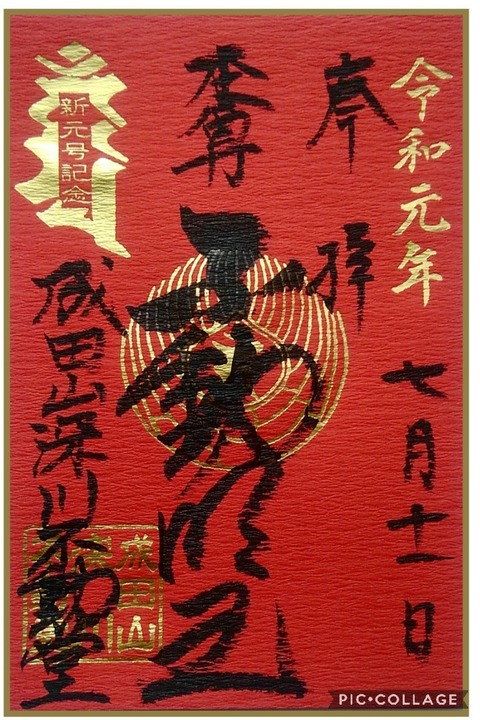 令和元年
七月十一日
奉拝
本尊
不動明王
新元号記念
成田山深川不動堂
成田山
PIC•COLLAGE